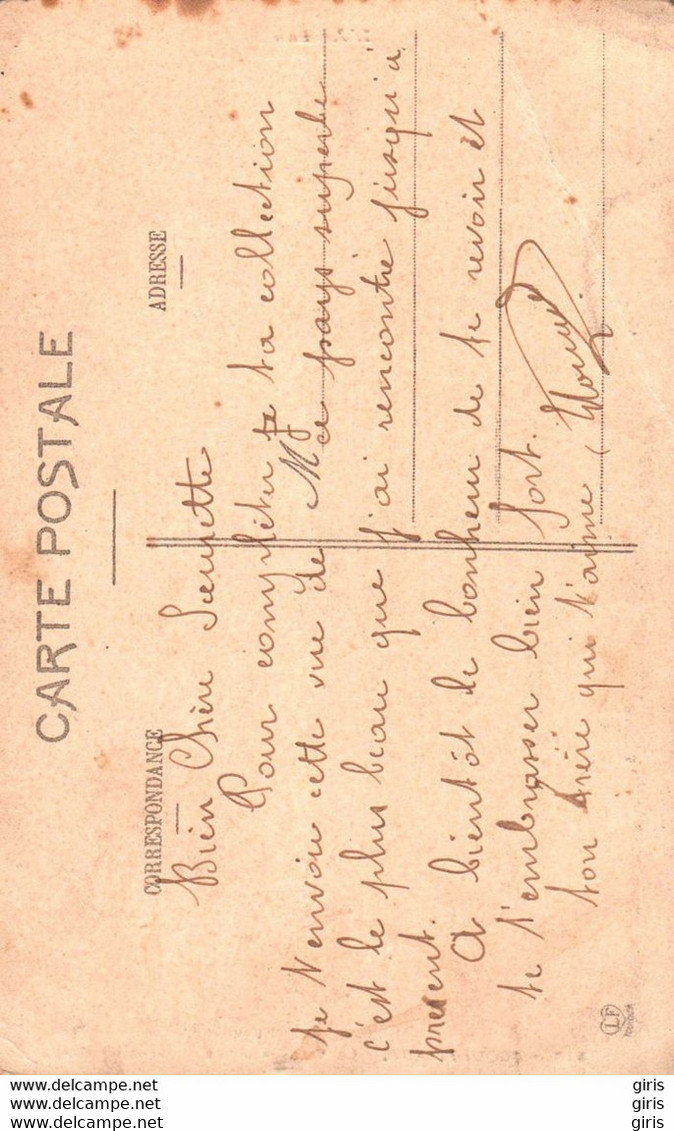 CARTE POSTALE
CORRESPONDANCE
ADRESSE
Bien Chère Sœurette
Pour compléter ta collection
je t'envoie cette vue de ce pays superbe
c'est le plus beau que j'ai rencontré jusqu'à
présent.
A bientôt le bonheur de te revoir et
de t'embrasser bien fort.
ton frère qui t'aime
LF
giris
giris
giris
www.delcampe.net
giris
giris
giris